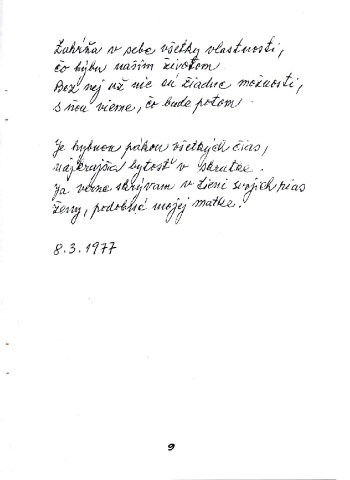 Zahŕňa v sebe všetky vlastnosti,
čo hýbu naším životom.
Bez nej už nie sú žiadne možnosti,
s ňou vieme, čo bude potom.
Je hybnou pákou všetkých čias,
najkrajšia bytosť v skratke.
Ja verne skrývam v tieni svojich rias
ženy, podobné mojej matke.
8.3.1977
9